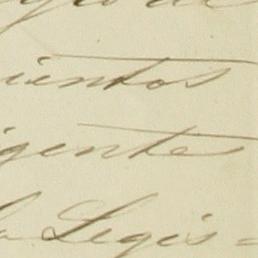 ientos
igentes
la Legis=